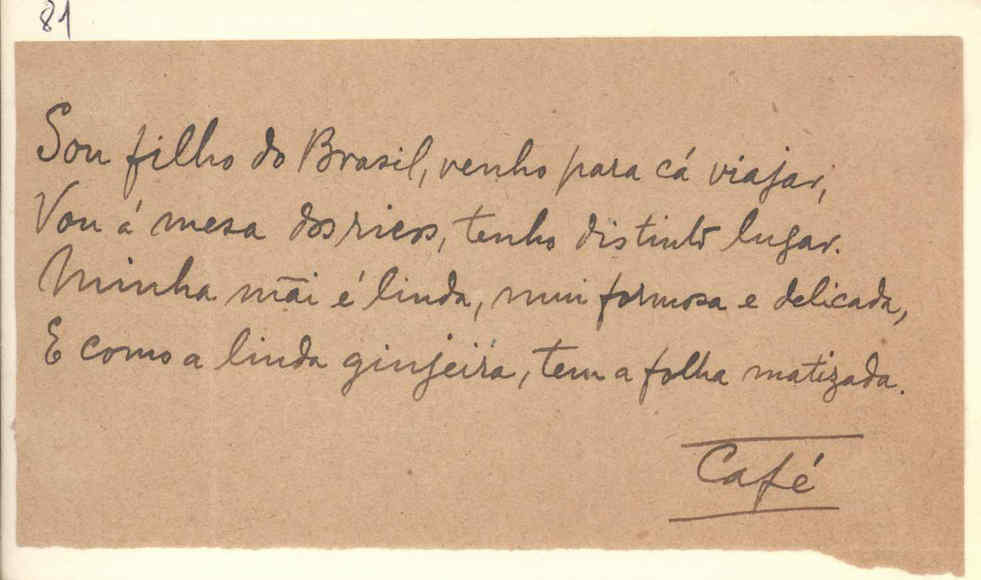 81
Sou filho do Brasil, venho para cá viajar,
Vou á mesa dos ricos, tenho distinto lugar.
Minha mãi é linda, mui formosa e delicada,
E como a linda ginjeira, tem a folha matizada.
Café